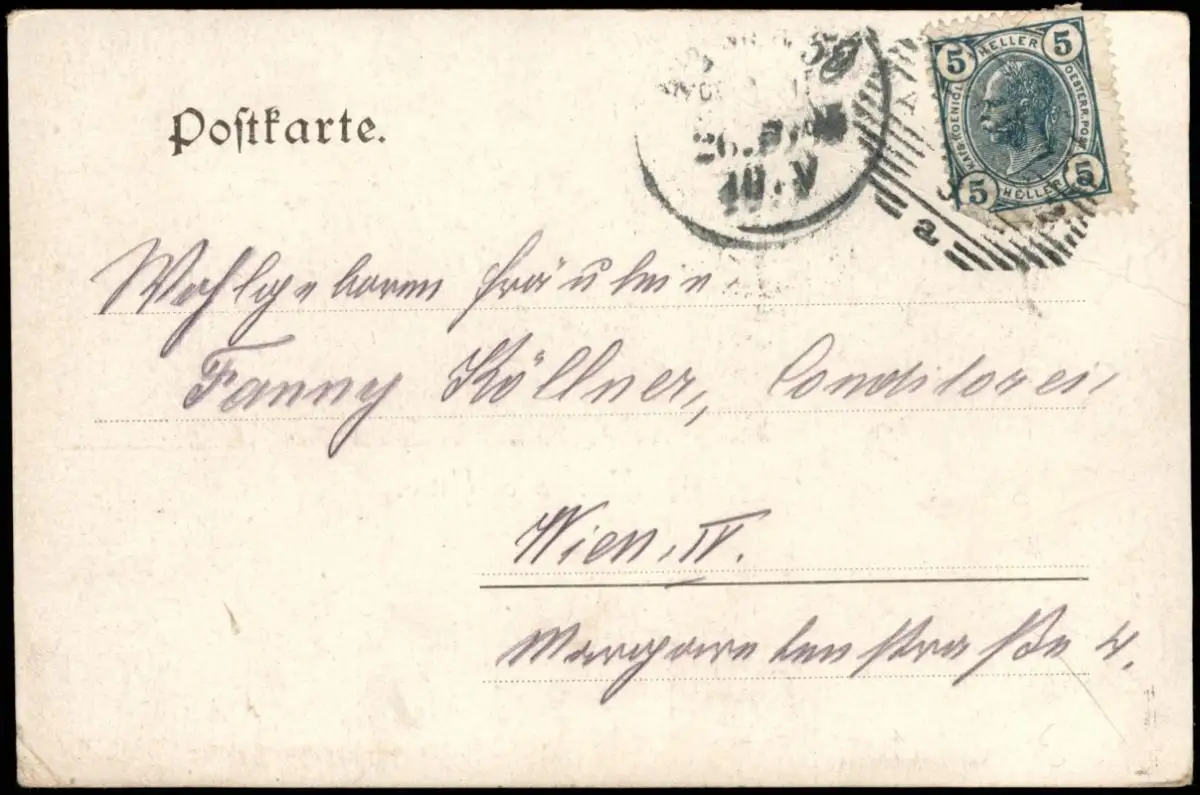 Postkarte.
5 HELLER 5
KAIS. KOENIGL. OESTERR. POST
5 HELLER 5
10.V
a.
Wohlgeboren Fräulein
Fanny Köllner, Conditorei
Wien, IV.
Margaretenstraße 4.